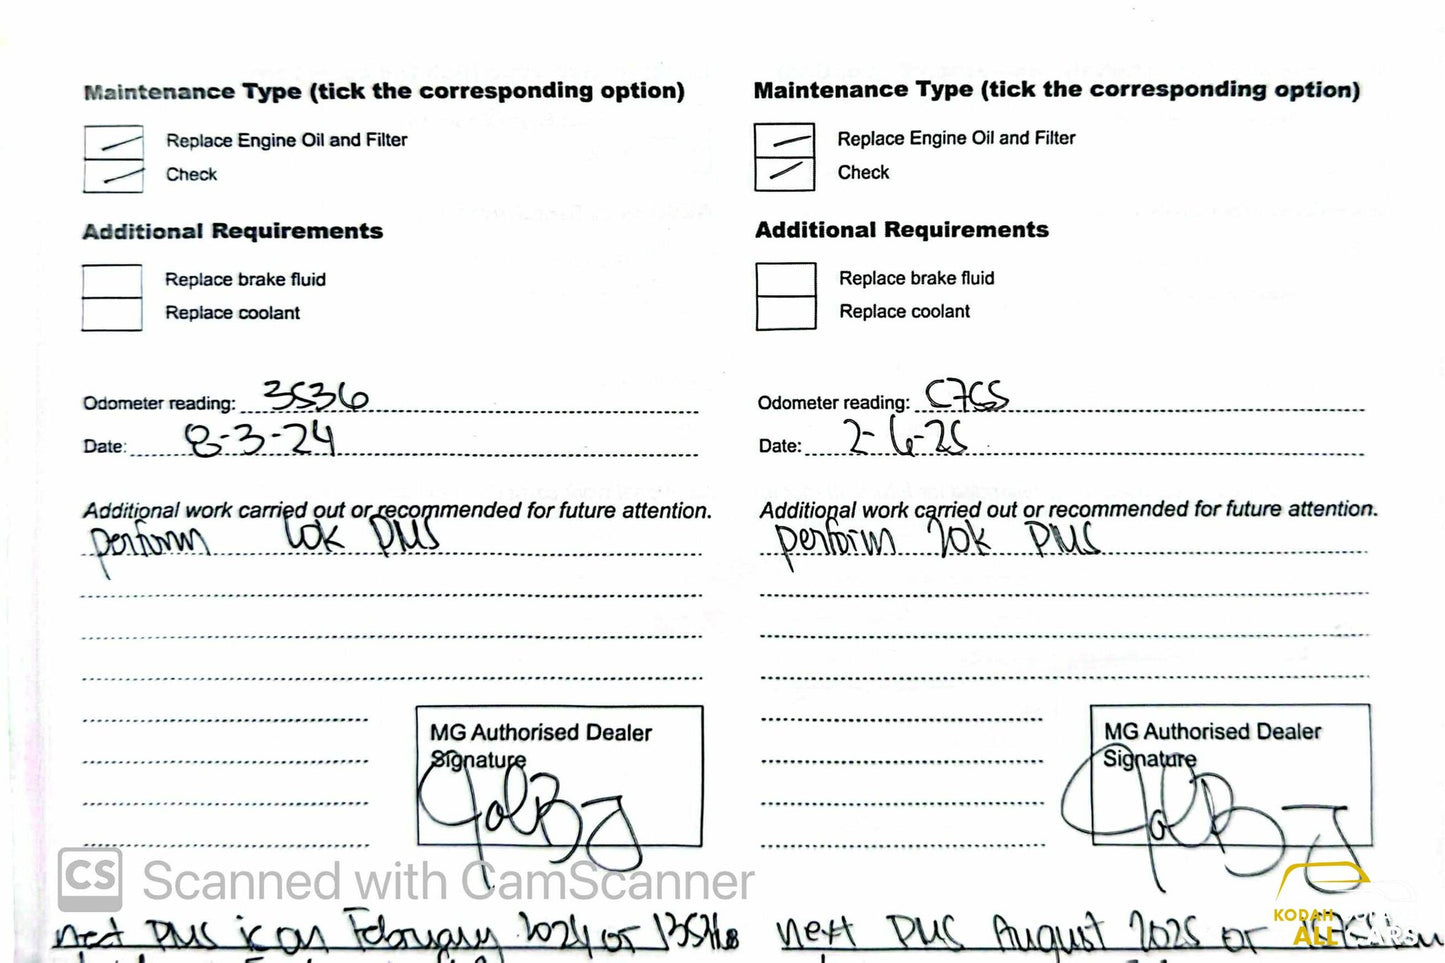 Maintenance Type (tick the corresponding option)
Replace Engine Oil and Filter
Check
Additional Requirements
Replace brake fluid
Replace coolant
Odometer reading: 3536
Date: 8-3-24
Additional work carried out or recommended for future attention.
perform 10k PMS
MG Authorised Dealer
Signature
next PMS is on February 2024 or
Maintenance Type (tick the corresponding option)
Replace Engine Oil and Filter
Check
Additional Requirements
Replace brake fluid
Replace coolant
Odometer reading:
Date: 2-6-25
Additional work carried out or recommended for future attention.
perform 20k PMS
MG Authorised Dealer
Signature
next PMS August 2025 or
CS Scanned with CamScanner
KODAH
ALL CARS